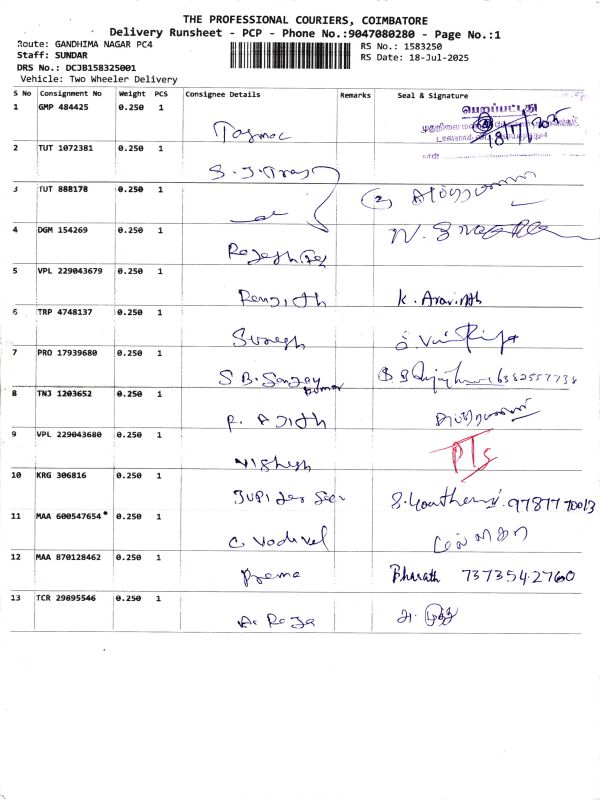 THE PROFESSIONAL COURIERS, COIMBATORE
Delivery Runsheet - PCP - Phone No.:9047080280 - Page No.:1
Route: GANDHIMA NAGAR PC4
RS No.: 1583250
Staff: SUNDAR
RS Date: 18-Jul-2025
DRS No.: DCJB158325001
Vehicle: Two Wheeler Delivery
S No Consignment No Weight PCS Consignee Details Remarks Seal & Signature
1 GMP 484425 0.250 1 Tasmac பெறப்பட்டது 18/7/2025
2 TUT 1072381 0.250 1
3 TUT 888178 0.250 1
4 DGM 154269 0.250 1 Rajesh
5 VPL 229043679 0.250 1 Renjith K. Aravinth
6 TRP 4748137 0.250 1 Suresh
7 PRO 17939680 0.250 1 S B. Sanjay Kumar 6382557738
8 TNJ 1203652 0.250 1 P. Ajith
9 VPL 229043680 0.250 1 Vignesh PTS
10 KRG 306816 0.250 1 Jupiter 9787770013
11 MAA 600547654 0.250 1 C. Vadivel
12 MAA 870128462 0.250 1 Prema Bharath 7373542760
13 TCR 29895546 0.250 1 A. Raja அ. முத்து